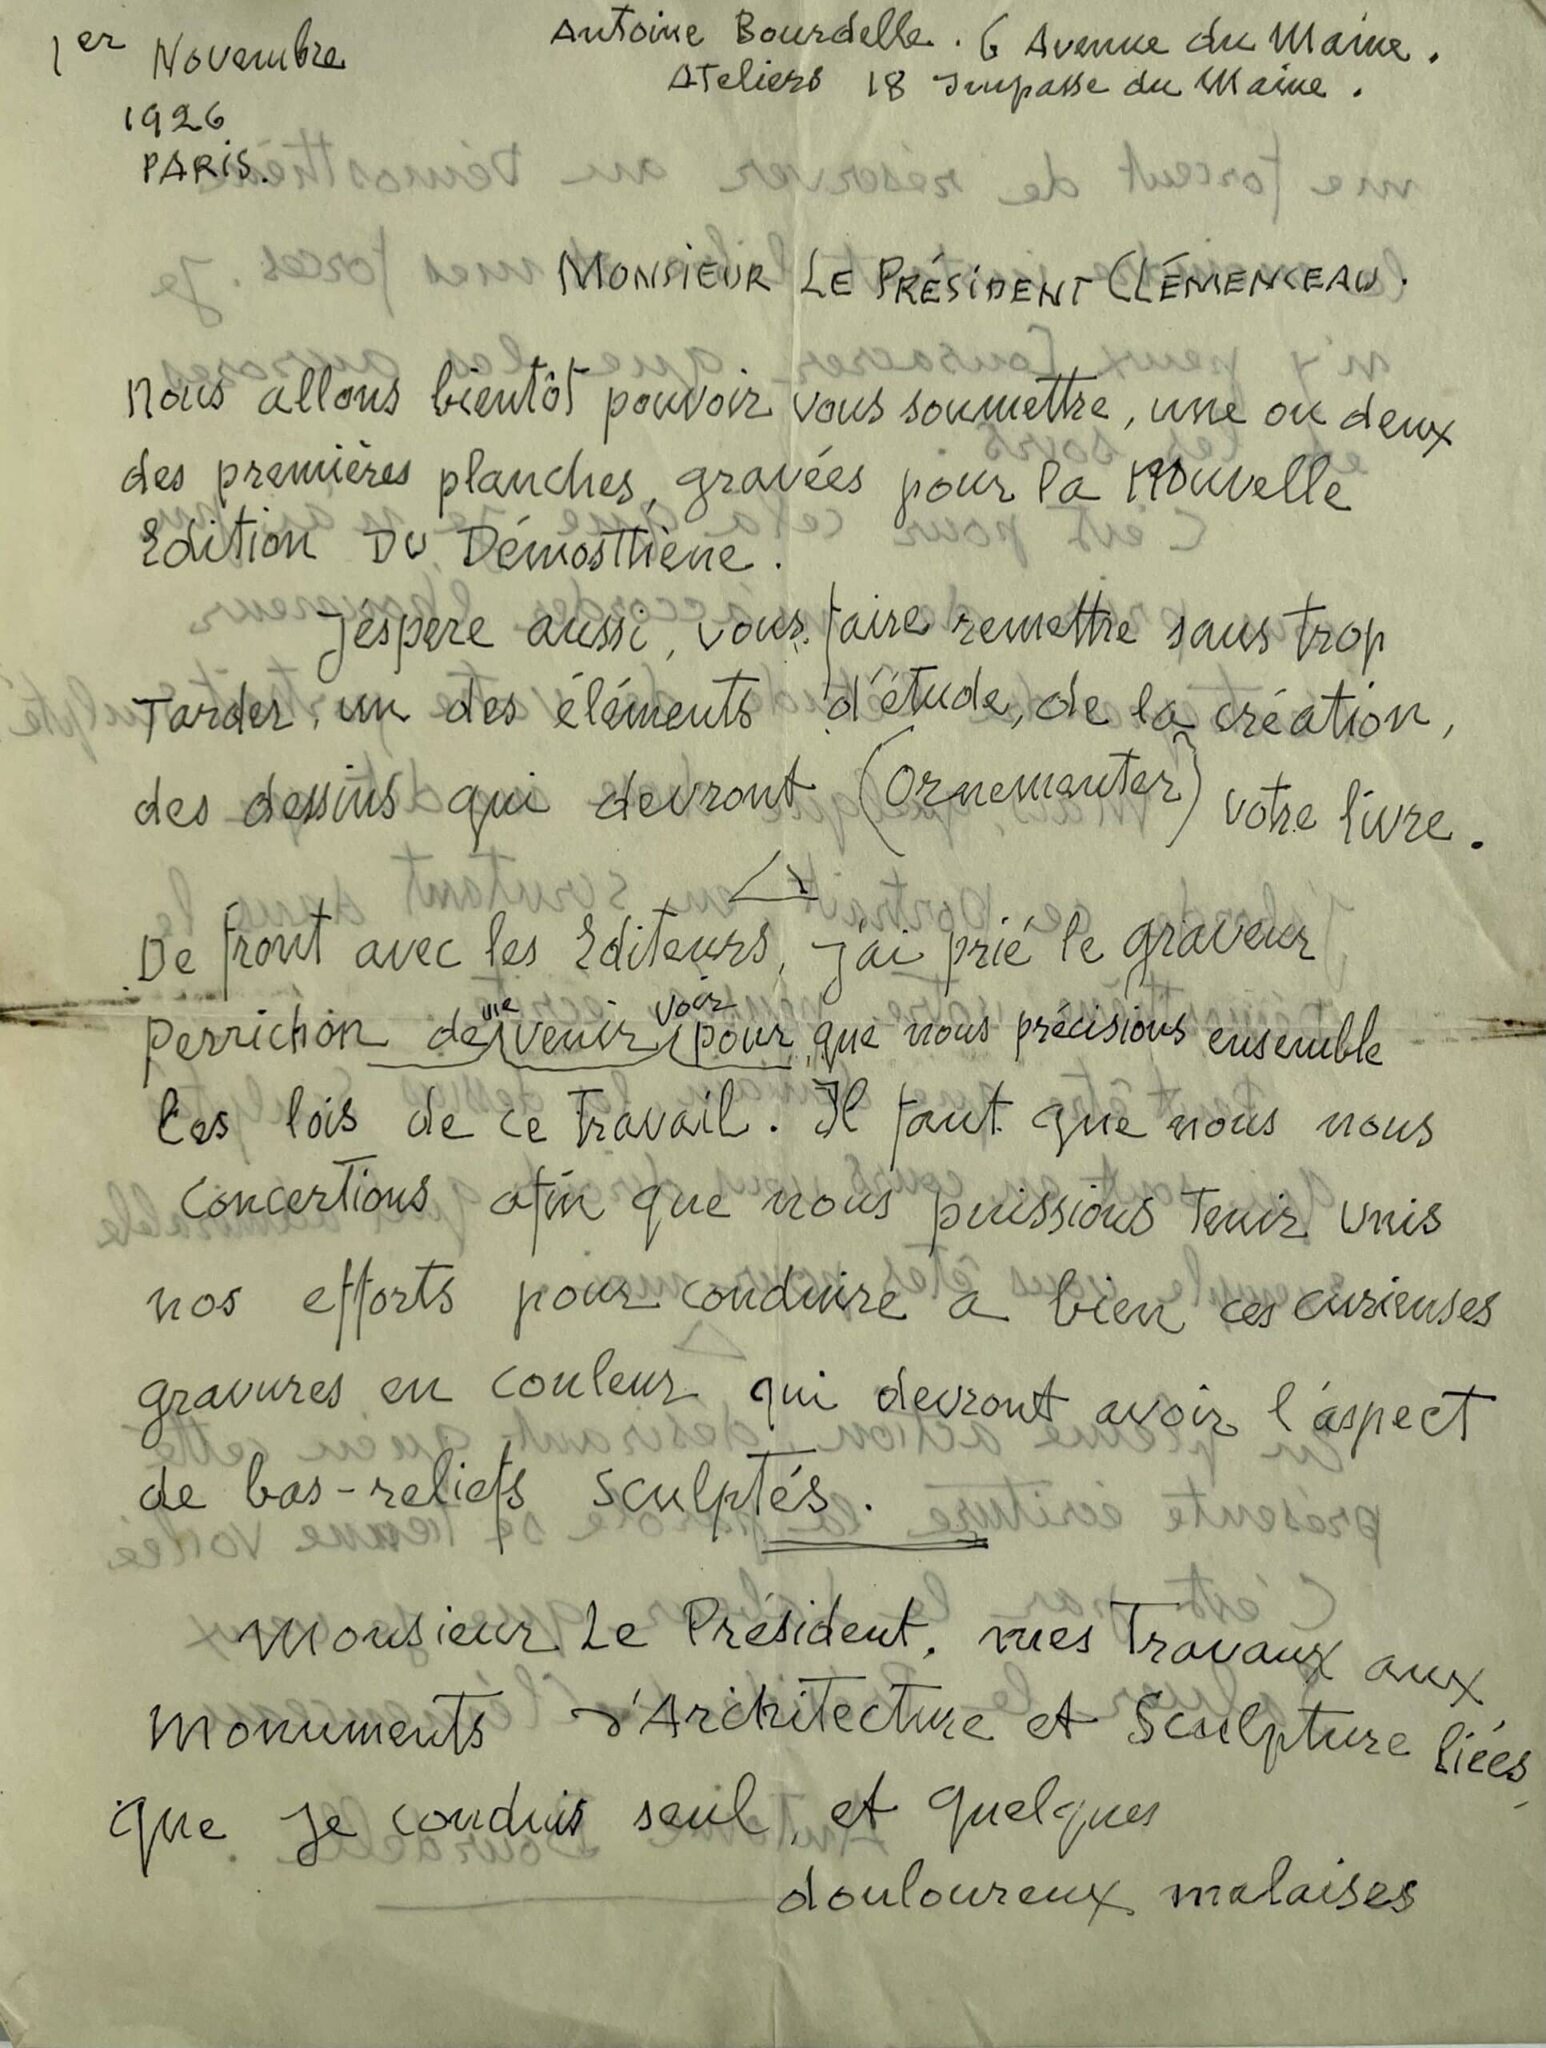 1er Novembre
1926
PARIS.
Antoine Bourdelle. 6 Avenue du Maine.
Ateliers 18 Impasse du Maine.
MONSIEUR LE PRÉSIDENT CLÉMENCEAU.
Nous allons bientôt pouvoir vous soumettre, une ou deux
des premières planches, gravées pour la Nouvelle
Edition DU Démosthène.
J'éspère aussi, vous faire remettre sans trop
Tarder, un des éléments d'étude, de la création,
des dessins qui devront (Ornementer) votre livre.
De front avec les Editeurs, j'ai prié le graveur
Perrichon de me venir voir pour que nous précisions ensemble
Les lois de ce Travail. Il faut que nous nous
concertions afin que nous puissions Tenir unis
nos efforts pour conduire a bien ces curieuses
gravures en couleur qui devront avoir l'aspect
de bas-reliefs sculptés.
Monsieur Le Président, mes Travaux aux
Monuments d'Architecture et Sculpture liées,
que je conduis seul, et quelques
douloureux malaises